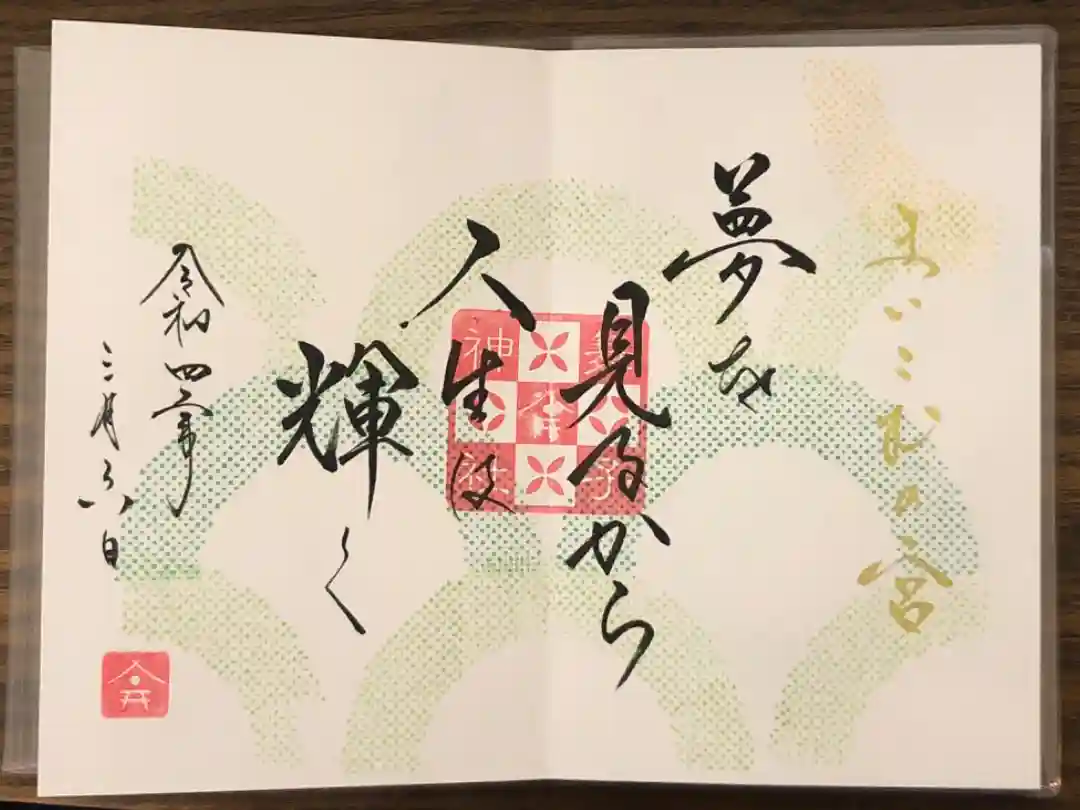 まいこむの宮
夢を
見るから
人生は
輝く
令和四年
三月六日
舞子
神社